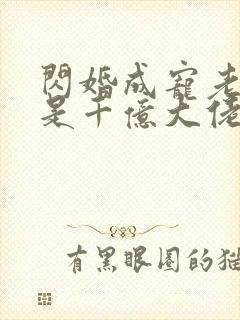 閃婚成寵老
是千億大佬
有黑眼圈的貓